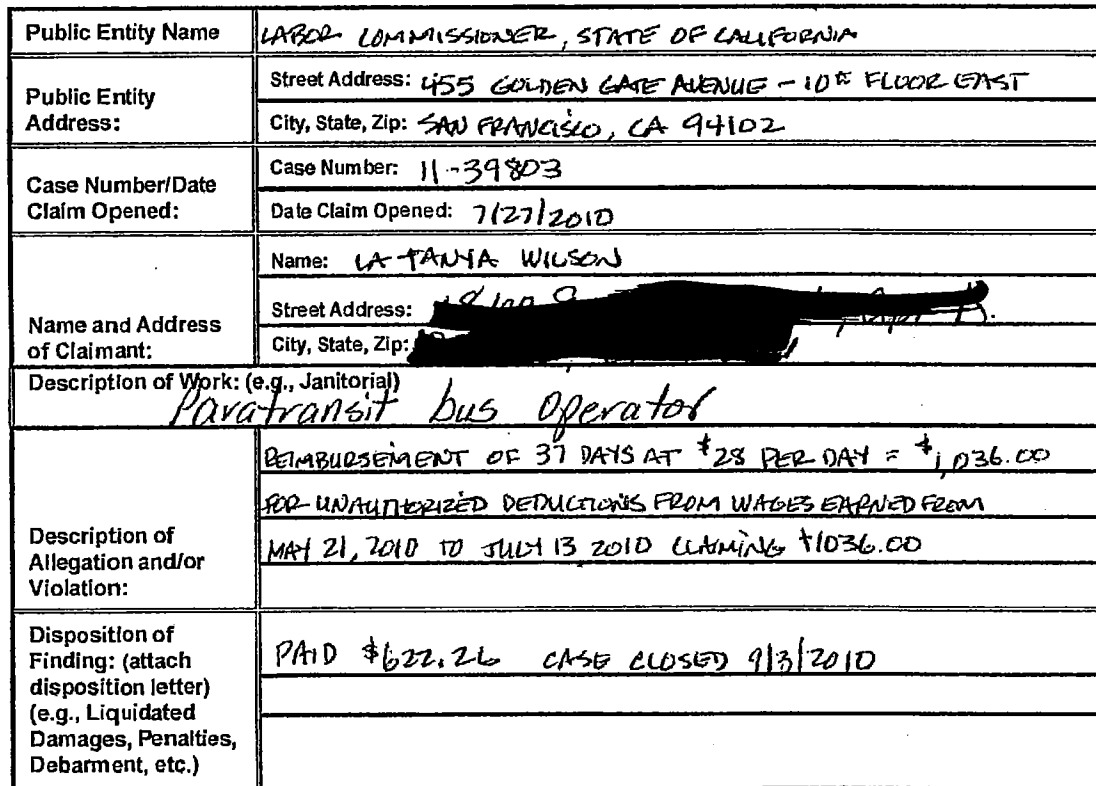 Public Entity Name LABOR COMMISSIONER, STATE OF CALIFORNIA
Public Entity Address:
Street Address: 455 GOLDEN GATE AVENUE - 10TH FLOOR EAST
City, State, Zip: SAN FRANCISCO, CA 94102
Case Number/Date Claim Opened:
Case Number: 11-39803
Date Claim Opened: 7/27/2010
Name and Address of Claimant:
Name: LA TANYA WILSON
Street Address:
City, State, Zip:
Description of Work: (e.g., Janitorial)
Paratransit bus operator
Description of
Allegation and/or
Violation:
REIMBURSEMENT OF 37 DAYS AT $28 PER DAY = $1,036.00
FOR UNAUTHORIZED DEDUCTIONS FROM WAGES EARNED FROM
MAY 21, 2010 TO JULY 13 2010 CLAIMING $1036.00
Disposition of
Finding: (attach
disposition letter)
(e.g., Liquidated
Damages, Penalties,
Debarment, etc.)
PAID $622.26 CASE CLOSED 9/3/2010